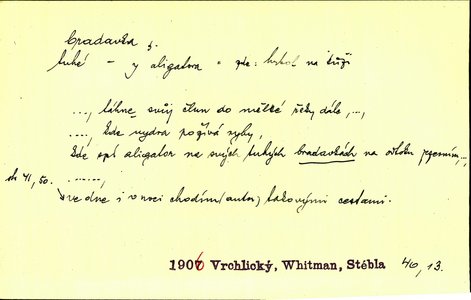 bradavka ž.
tuhé – y aligatora = zde: hrbol na kůži
..., táhne svůj člun do mělké řeky dále, ...,
...., kde vydra požívá ryby,
kde spí aligator na svých tuhých bradavkách na otoku jezerním, ...
str 41, 50. .......,
ve dne i v noci chodím (autor) takovými cestami.
1906 Vrchlický, Whitman, Stébla 40, 13.